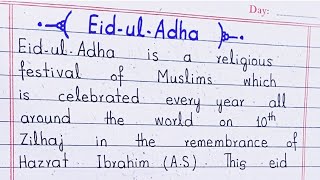 Day:
Eid-ul-Adha
Eid-ul-Adha is a religious
festival of Muslims which
is celebrated every year all
around the world on 10th
Zilhaj in the remembrance of
Hazrat Ibrahim (A.S) This eid